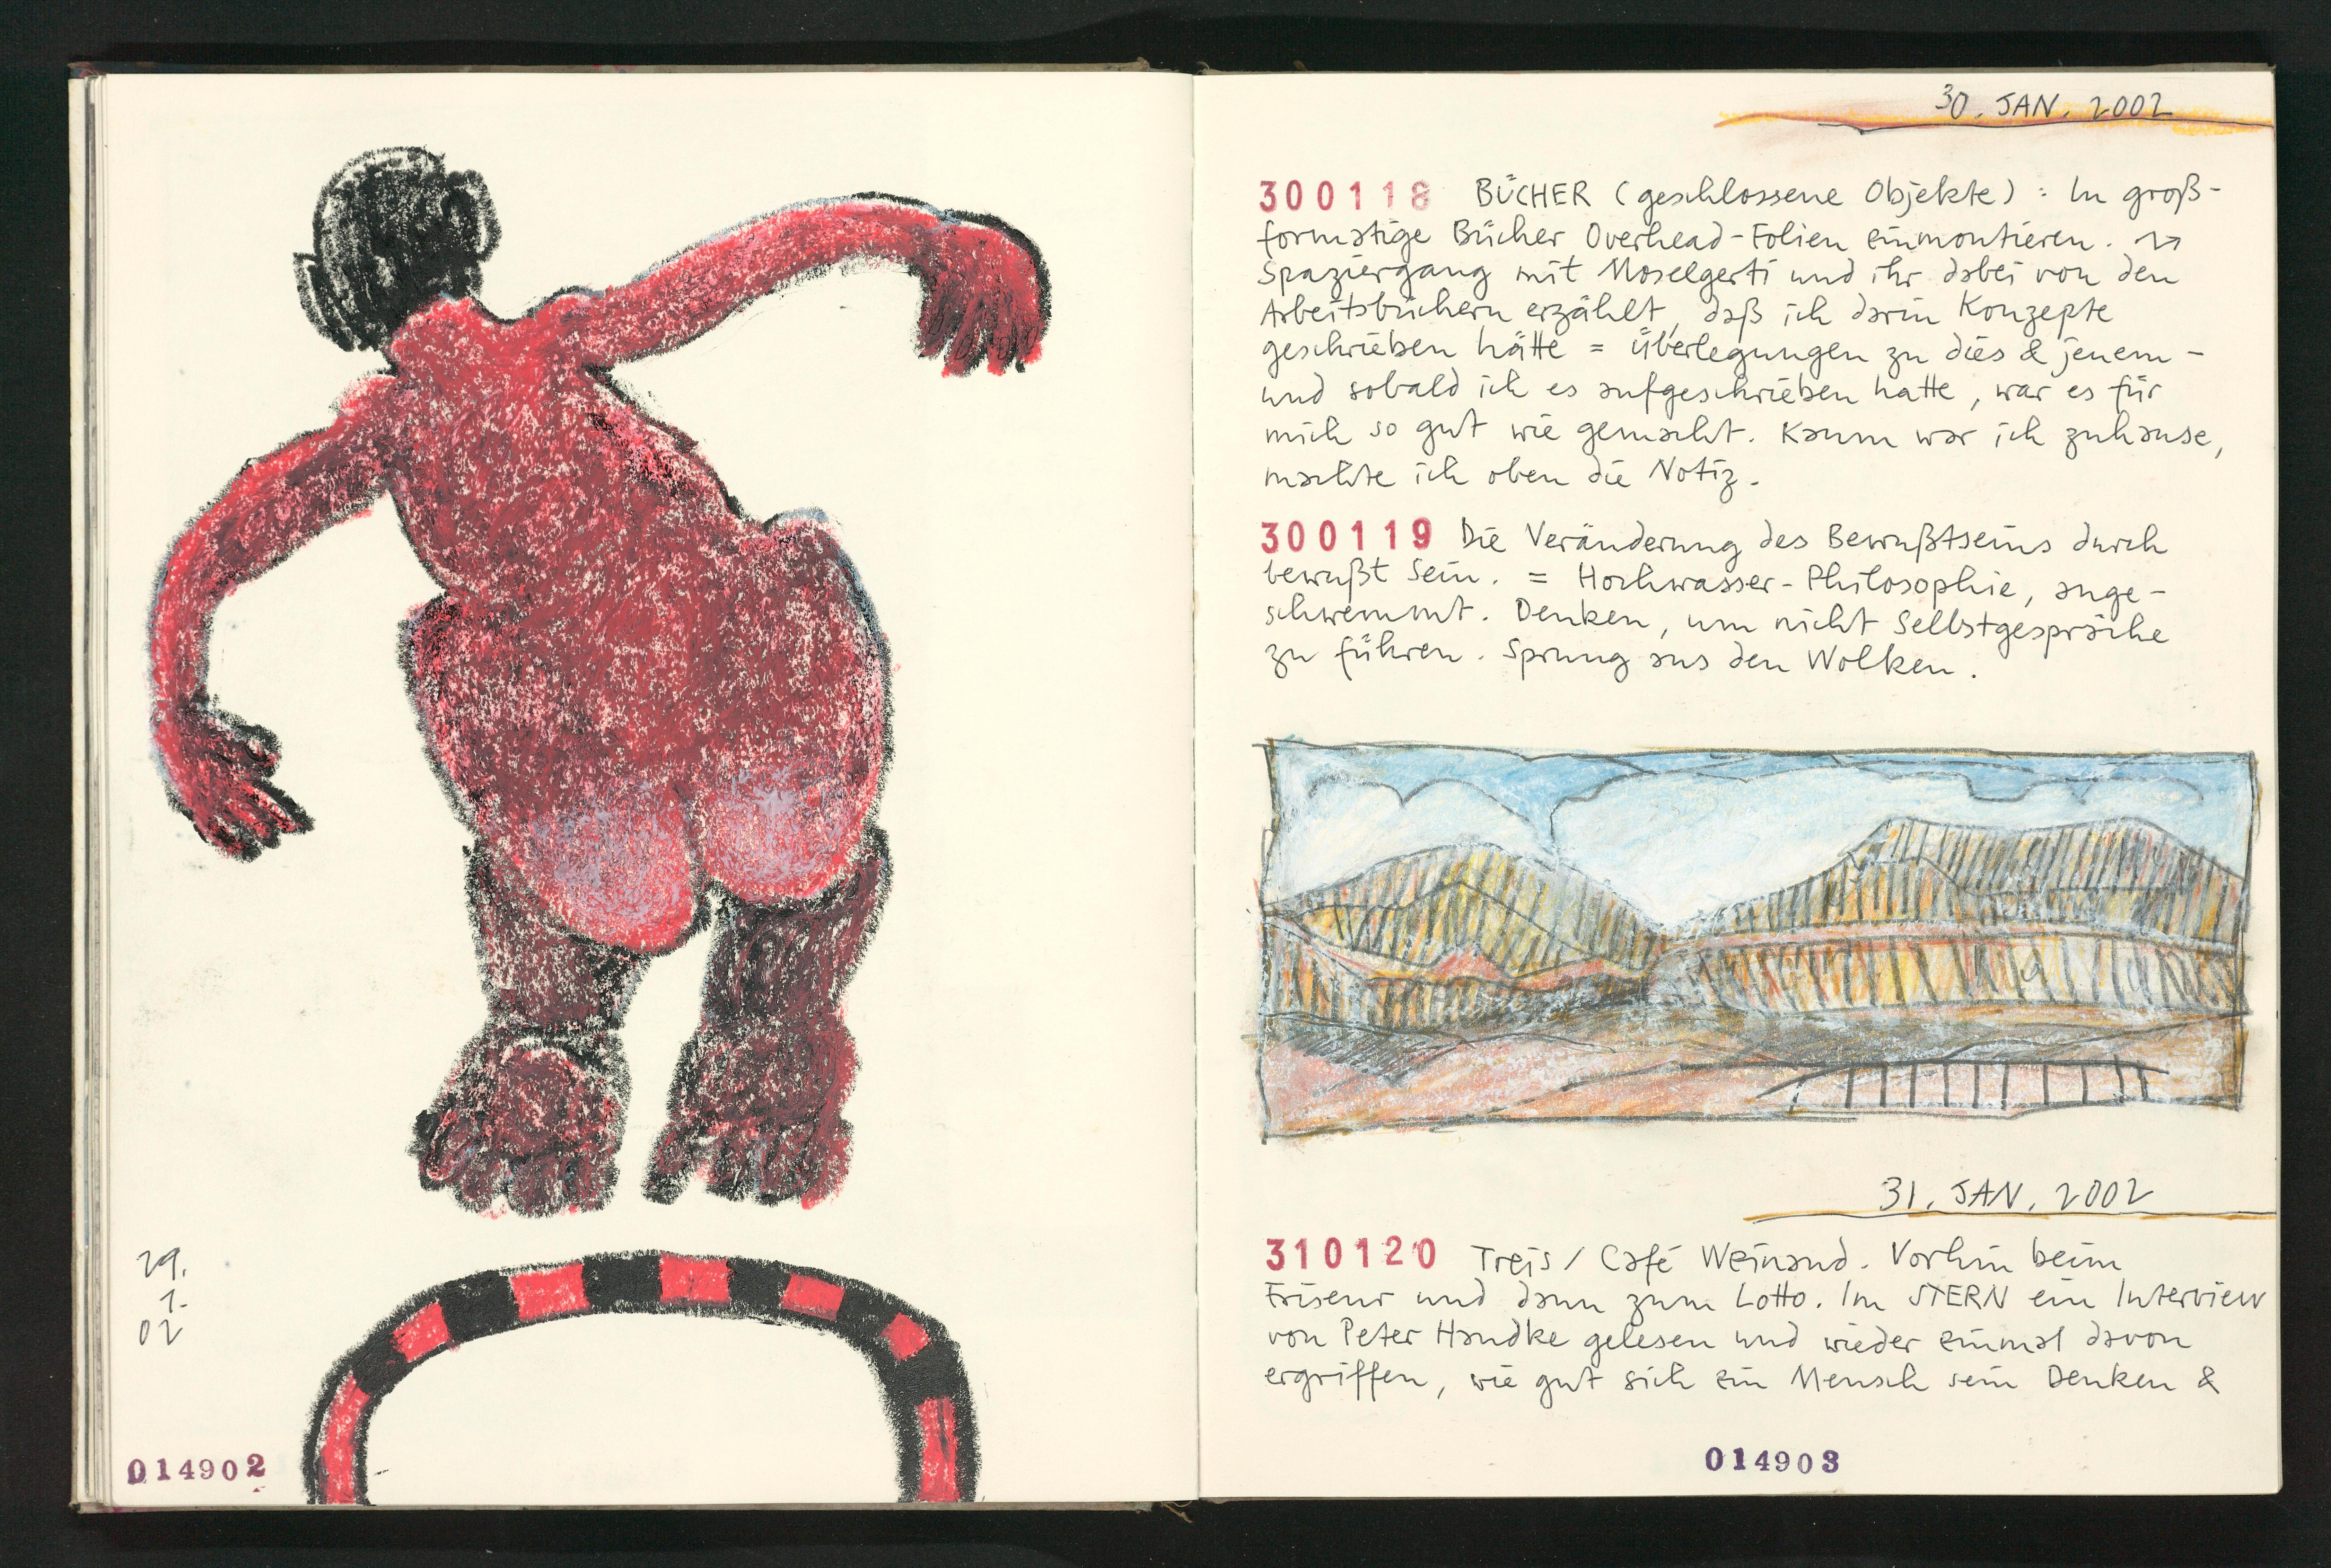 29.
1.
02
014902
30. JAN. 2002
300118 BÜCHER (geschlossene Objekte): In groß-
formatige Bücher Overhead-Folien einmontieren.
Spaziergang mit Moselgerti und ihr dabei von den
Arbeitsbüchern erzählt, daß ich darin Konzepte
geschrieben hätte = Überlegungen zu dies & jenem -
und sobald ich es aufgeschrieben hatte, war es für
mich so gut wie gemacht. Kaum war ich zuhause,
machte ich oben die Notiz.
300119 Die Veränderung des Bewußtseins durch
bewußt Sein. = Hochwasser-Philosophie, ange-
schwemmt. Denken, um nicht Selbstgespräche
zu führen. Sprung aus den Wolken.
31. JAN. 2002
310120 Treis / Café Weinand. Vorhin beim
Friseur und dann zum Lotto. Im STERN ein Interview
von Peter Handke gelesen und wieder einmal davon
ergriffen, wie gut sich ein Mensch sein Denken &
014903